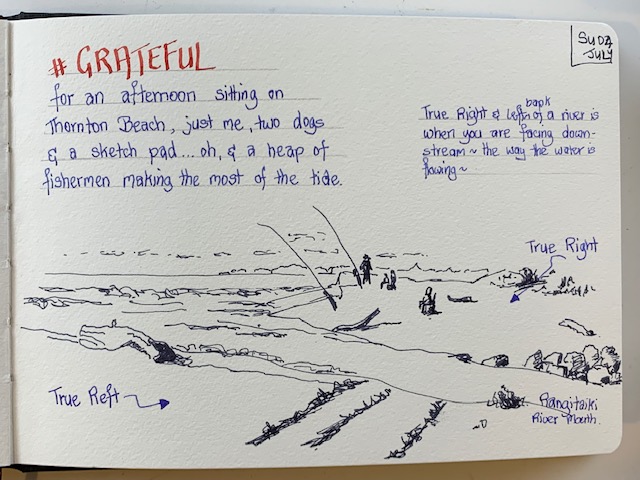 # GRATEFUL
for an afternoon sitting on
Thornton Beach, just me, two dogs
& a sketch pad... oh, & a heap of
fishermen making the most of the tide.
SUDZ
JULY
True Right & Left bank of a river is
when you are facing down-
stream ~ the way the water is
flowing ~
True Right
True Reft
Rangitaiki
River Mouth.